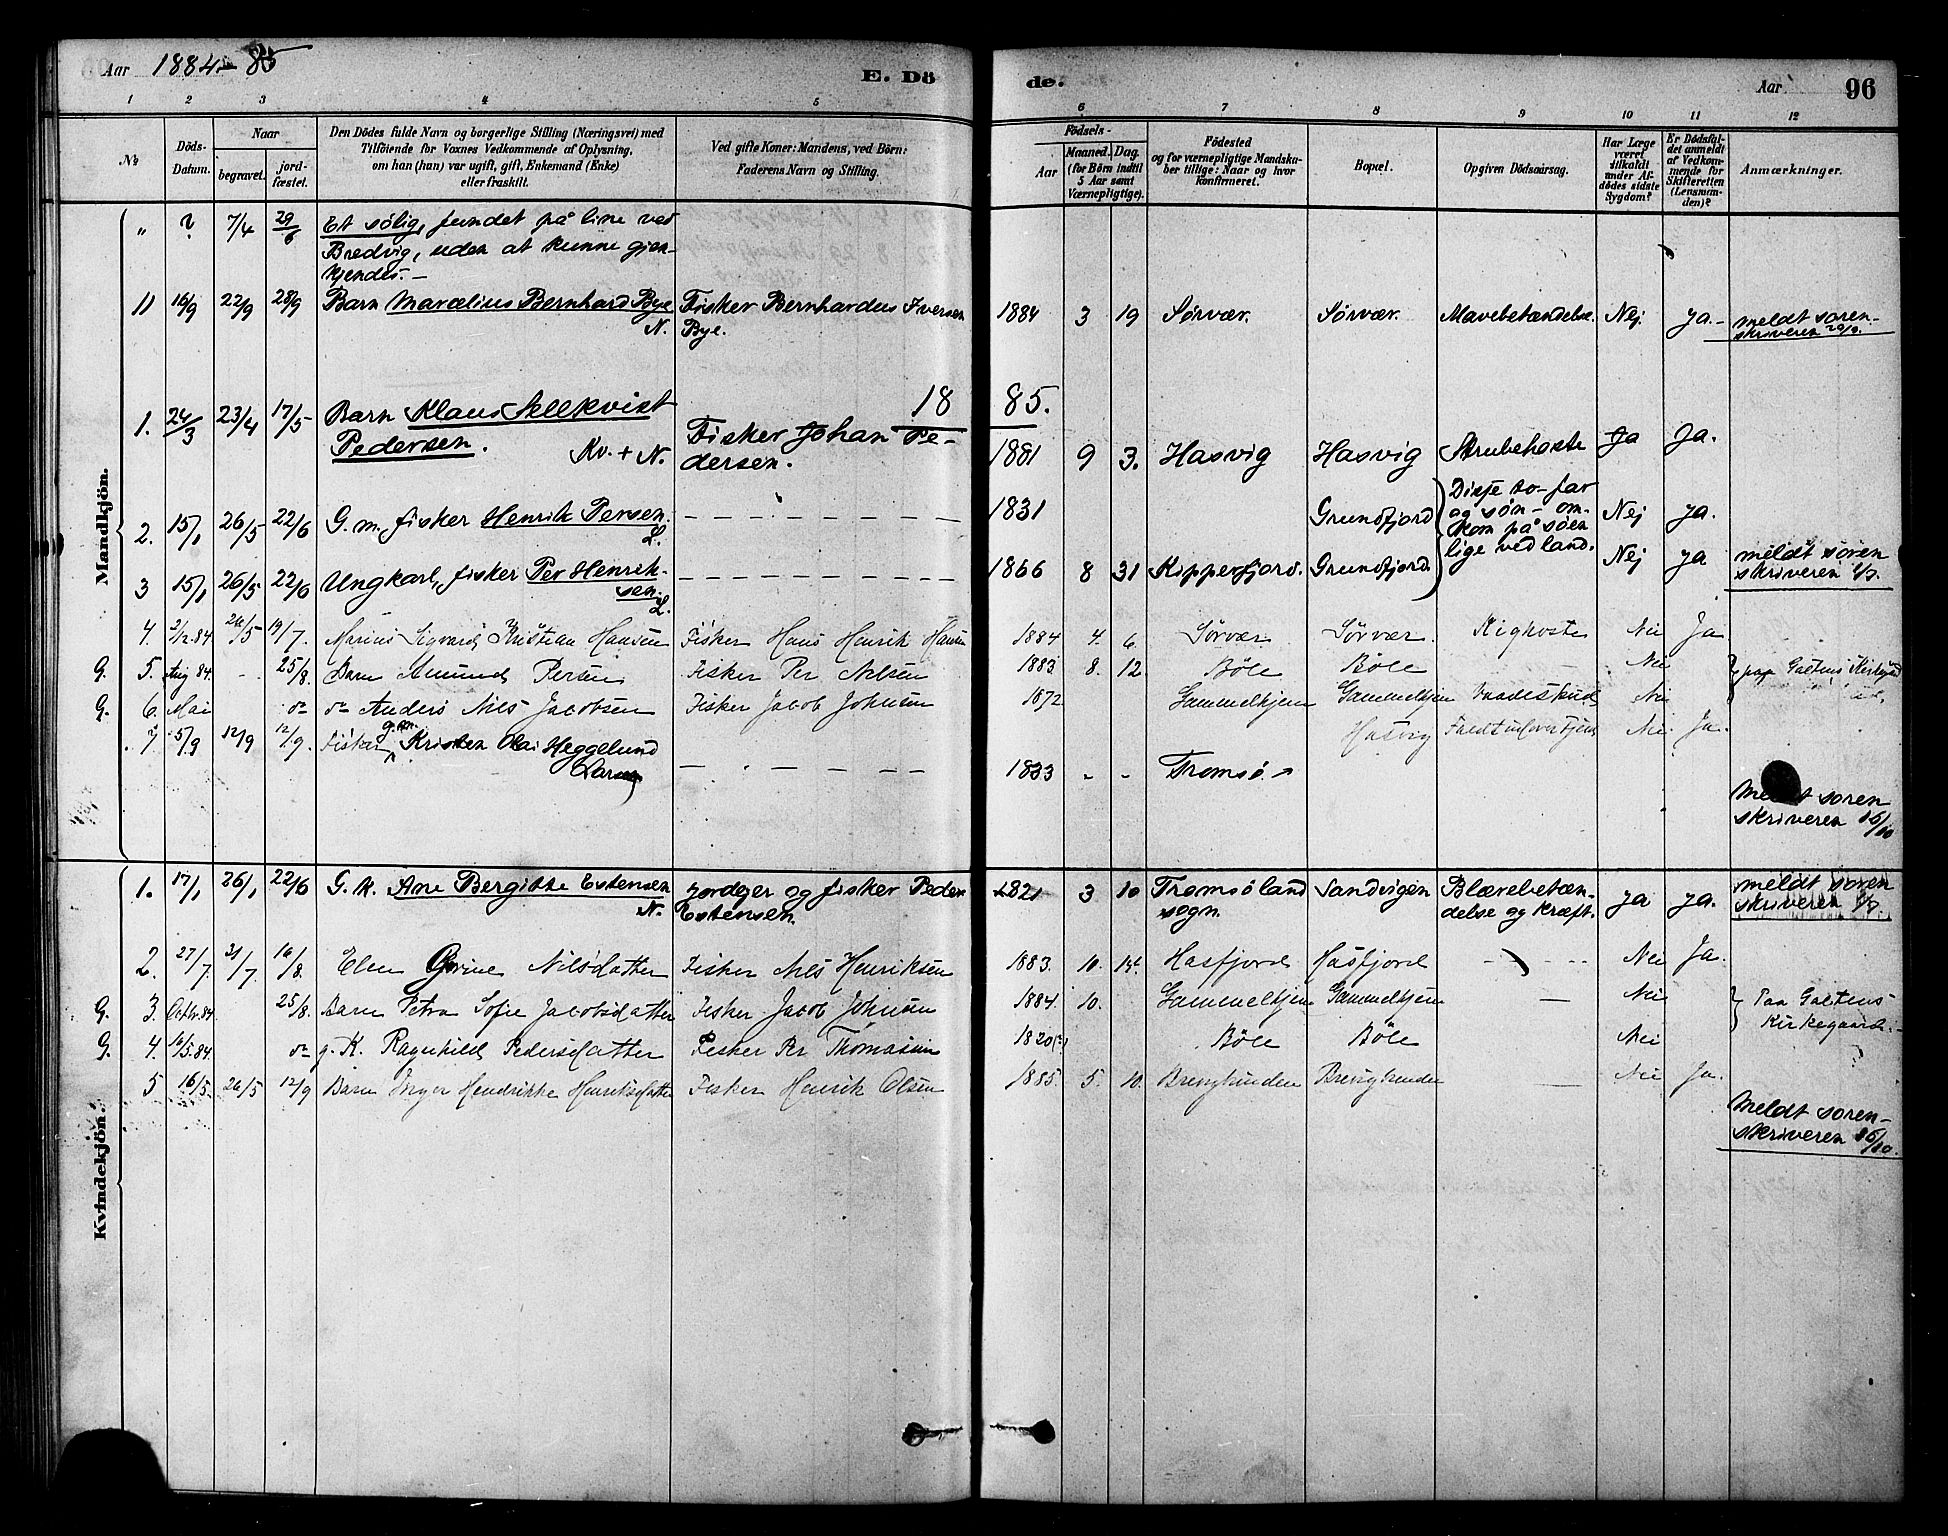 Aar 1884-85
E. Dö
de.
Aar 96
1 2 3 4 5 6 7 8 9 10 11 12
No
Döds-
Datum.
Naar
begravet.
jord-
fæstet.
Den Dödes fulde Navn og borgerlige Stilling (Næringsvei) med
Tilföiende for Voxnes Vedkommende af Oplysning,
om han (hun) var ugift, gift, Enkemand (Enke)
eller fraskilt.
Ved gifte Koner: Mandens, ved Börn:
Faderens Navn og Stilling.
Födsels-
Aar
Maaned. Dag.
(for Börn indtil
5 Aar samt
Værnepligtige).
Födested
og for værnepligtige Mandska-
ber tillige: Naar og hvor
konfirmeret.
Bopæl.
Opgiven Dödsaarsag.
Har Læge
været
tilkaldt
under Af-
dödes sidste
Sygdom?
Er Dödsfal-
det anmeldt
af Vedkom-
mende for
Skifteretten
(Lensman-
den)?
Anmærkninger.
Mandkjön.
" ? 7/4 29/6 Et sølig, fundet på line ved
Bredvig, uden at kunne gjen-
kjendes.-
11 16/9 22/9 28/9 Barn Marcelius Bernhard Bye Fisker Bernhardus Iversen 1884 3 19 Sørvær. Sørvær. Mavebetændelse. Nej. ja.- meldt soren-
N. Bye. skriveren
1885.
1. 24/3 23/4 17/5 Barn Klaus Sellkvist
Pedersen. Kv. + N. Fisker Johan Pe- 1881 9 3. Hasvig Hasvig Strubehoste Ja Ja.
dersen.
2. 15/1 26/5 22/6 G. m. fisker Henrik Persen. L. - - - 1831 Grundfjord Disse to - far Nej ja.
og søn - om-
kom på søen
lige ved land.
3 15/1 26/5 22/6 Ungkarl, fisker Per Henrik- - - - 1866 8 31 Kipperfjord. Grundfjord. Nej ja meldt soren
sen. L. skriveren
4. 2/12.84 26/5 19/7. Marius Sigvard Kristian Hansen Fisker Hans Henrik Hansen 1884 4. 6. Sørvær Sørvær. Kighoste Nei Ja
G. 5. Aug 84. - 25/8. Barn Amund Persen Fisker Per Nilsen 1883 8. 12. Böle Böle Nei
G. 6. Mai do do Anders Nils Jacobsen Fisker Jacob Johnsen 1872 Gammelhjem Gammelhjem Vaadeskud Nei
7 5/9 12/9 12/9. Fisker g.m. Kristen Olai Heggelund Hasvig Nei Ja.
Larsen - - - 1833 - - Tromsø.
Meldt soren
skriveren 16/10
Kvindekjön.
1. 17/1 26/1 22/6 G. k. Ane Bergitte Estensen jordejer og fisker Peder 1821 3 10 Tromsøland Sandvigen Blærebetæn- ja ja. meldt soren
N. Estensen. sogn. delse og kræft. skriveren
2. 27/7 31/7. 16/8. Elen Grine Nilsdatter Fisker Nils Henriksen 1883. 10. 14. Hasfjord Hasfjord - - - Nei Ja.
G. 3. Octbr. 84 25/8. Barn Petra Sofie Jacobsdatter Fisker Jacob Johnsen 1884 10. Gammelhjem Gammelhjem - Nei Paa Galtens
Kirkegaard.
G. 4. 16/5.84. do g. K. Ragnhild Pedersdatter Fisker Per Thomassen 1820(?) Böle Böle Nei
5 16/5 26/5 12/9 Barn Inger Hendrikke Henriksdatter Fisker Henrik Olsen 1885. 5. 10. - Nei Ja.
Meldt soren-
skriveren 16/10.